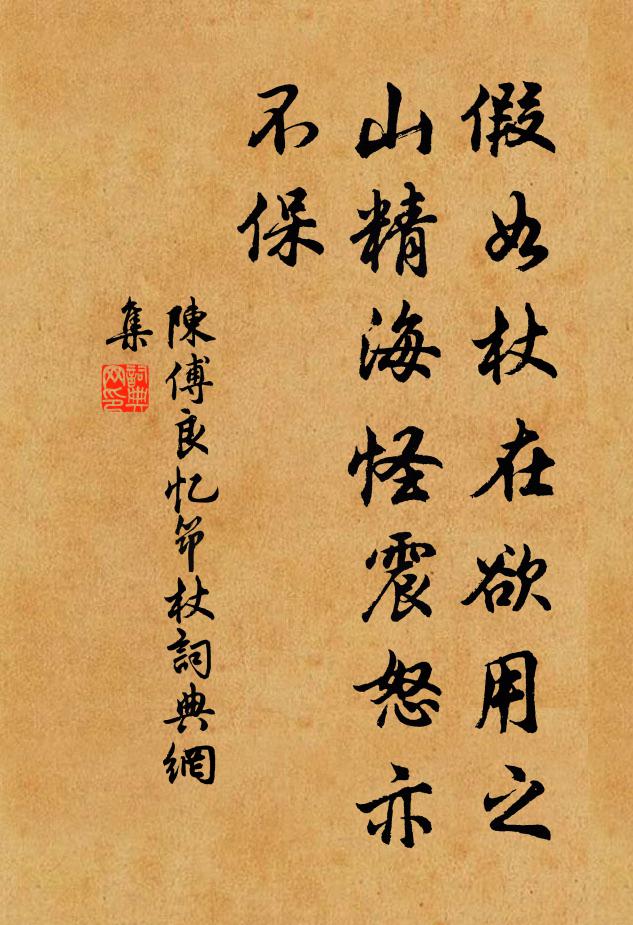 假如杖在欲用之
山精海怪震怒亦
不保
陳傅良忆笻杖詞典網
集
詞典
网印